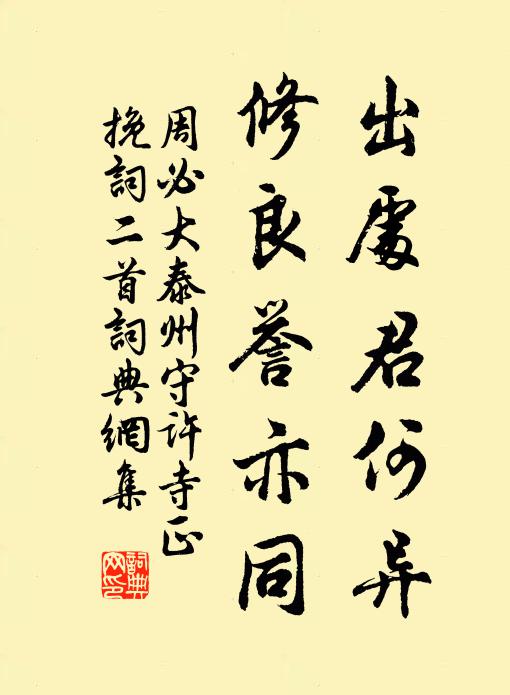 出處君何异
修良誉亦同
周必大泰州守許寺正
挽詞二首詞典網集
詞典网印